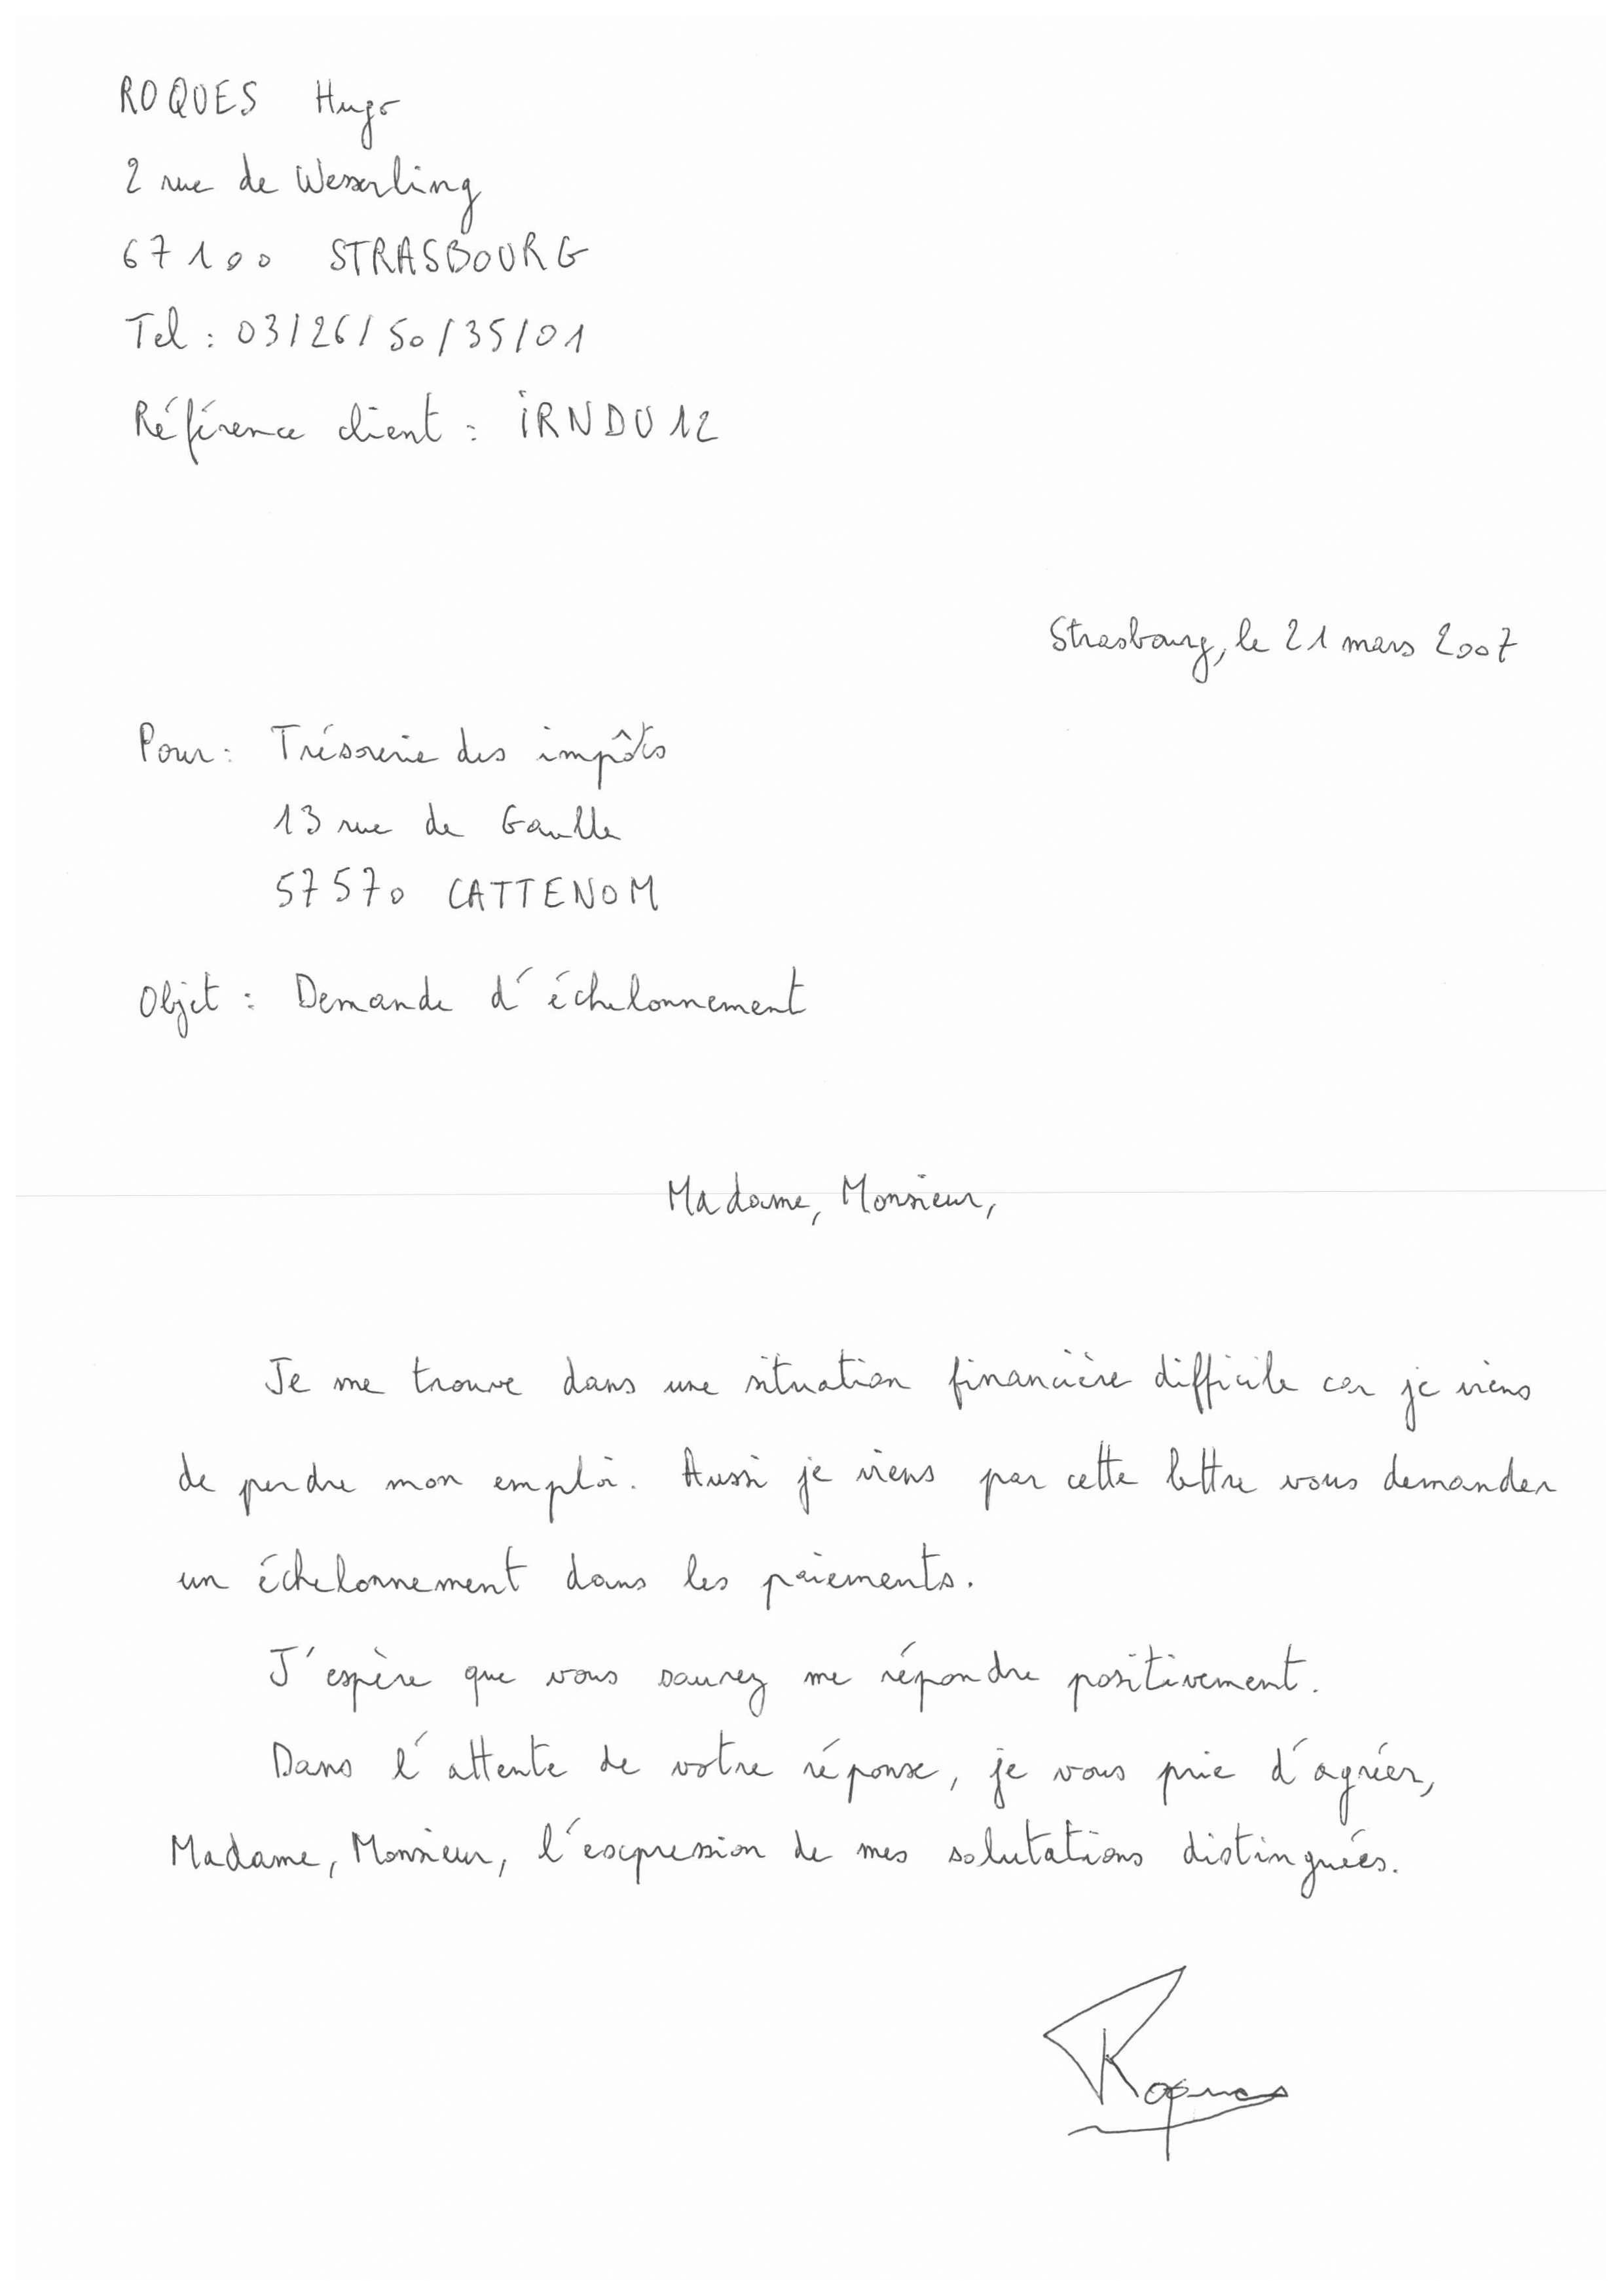 ROQUES Hugo
2 rue de Wesserling
67100 STRASBOURG
Tel : 03/26/50/35/01
Référence client : iRNDU12
Strasbourg, le 21 mars 2007
Pour : Trésorerie des impôts
13 rue de Gaulle
57570 CATTENOM
Objet : Demande d'échelonnement
Madame, Monsieur,
Je me trouve dans une situation financière difficile car je viens
de perdre mon emploi. Aussi je viens par cette lettre vous demander
un échelonnement dans les paiements.
J'espère que vous saurez me répondre positivement.
Dans l'attente de votre réponse, je vous prie d'agréer,
Madame, Monsieur, l'expression de mes salutations distinguées.
Roques